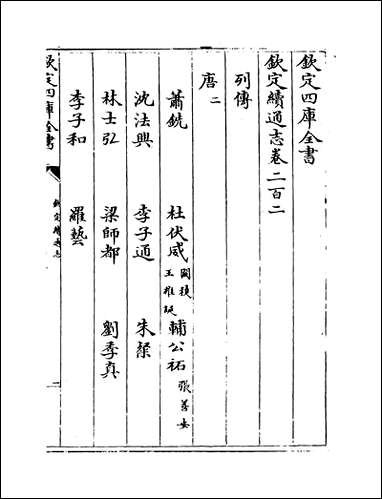 欽定四庫全書
欽定續通志卷二百二
列傳
唐二
蕭銑 杜伏威 闞稜 王雄誕 輔公祏 張善安
沈法興 李子通 朱粲
林士弘 梁師都 劉季真
李子和 羅藝
欽定四庫全書 欽定續通志 一